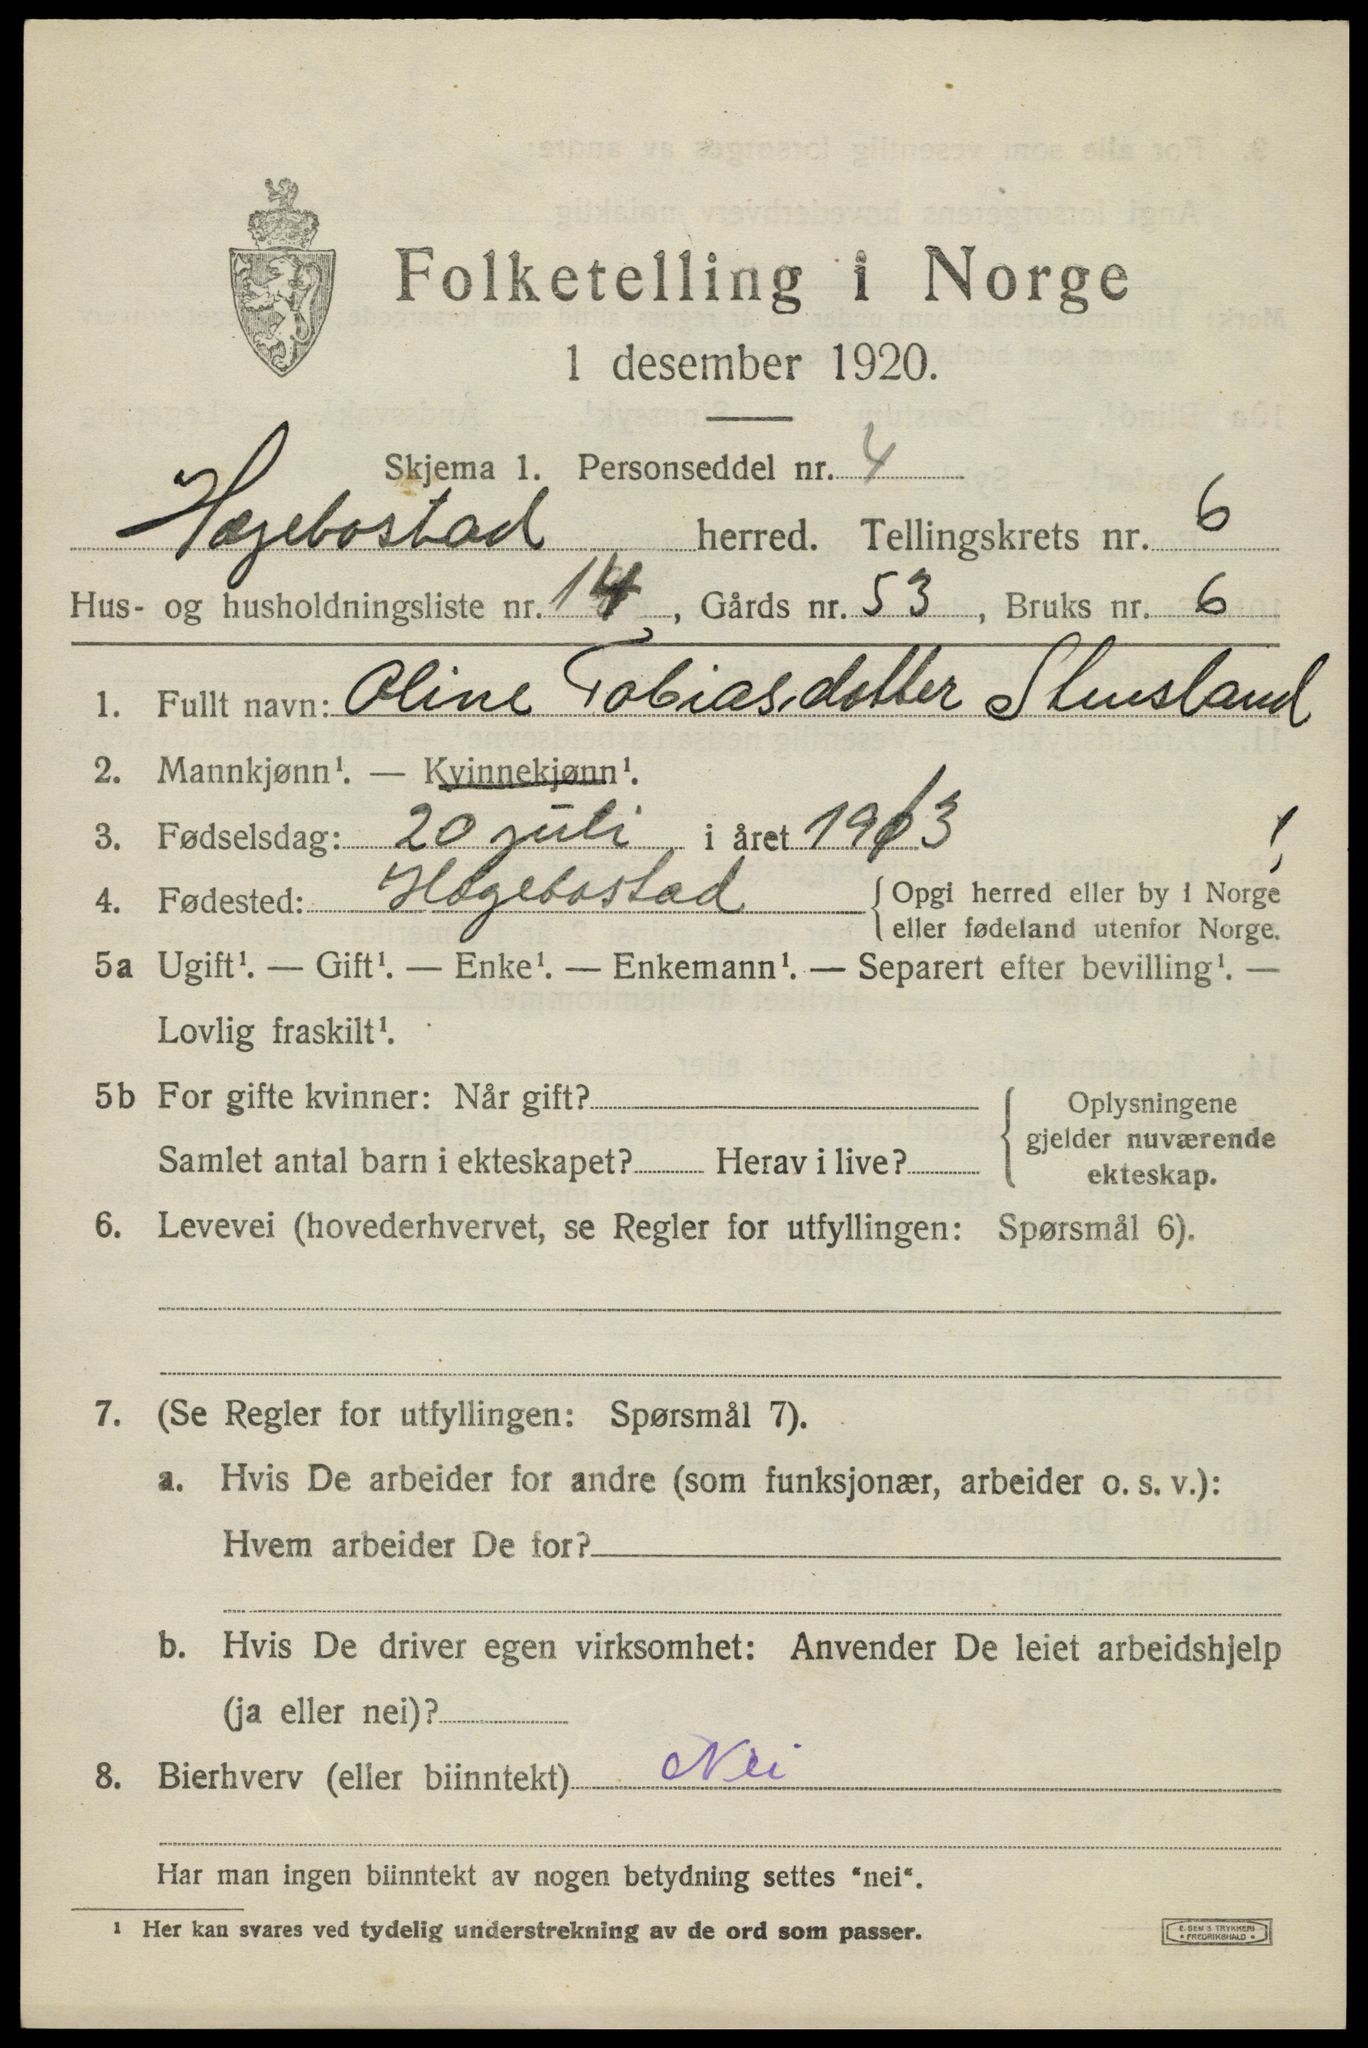 Folketelling i Norge
1 desember 1920.
Skjema 1. Personseddel nr. 4
Hægebostad herred. Tellingskrets nr. 6
Hus- og husholdningsliste nr. 14, Gårds nr. 53, Bruks nr. 6
1. Fullt navn: Oline Tobiasdotter Stensland
2. Mannkjønn¹. — Kvinnekjønn¹.
3. Fødselsdag: 20 juli i året 1913 !
4. Fødested: Hægebostad { Opgi herred eller by i Norge
eller fødeland utenfor Norge.
5a Ugift¹. — Gift¹. — Enke¹. — Enkemann¹. — Separert efter bevilling¹. —
Lovlig fraskilt¹.
5b For gifte kvinner: Når gift? { Oplysningene
gjelder nuværende
Samlet antal barn i ekteskapet? Herav i live?
ekteskap.
6. Levevei (hovederhvervet, se Regler for utfyllingen: Spørsmål 6).
7. (Se Regler for utfyllingen: Spørsmål 7).
a. Hvis De arbeider for andre (som funksjonær, arbeider o. s. v.):
Hvem arbeider De for?
b. Hvis De driver egen virksomhet: Anvender De leiet arbeidshjelp
(ja eller nei)?
8. Bierhverv (eller biinntekt) Nei
Har man ingen biinntekt av nogen betydning settes "nei".
¹ Her kan svares ved tydelig understrekning av de ord som passer.
E. SEM'S TRYKKERI
• FREDRIKSHALD •